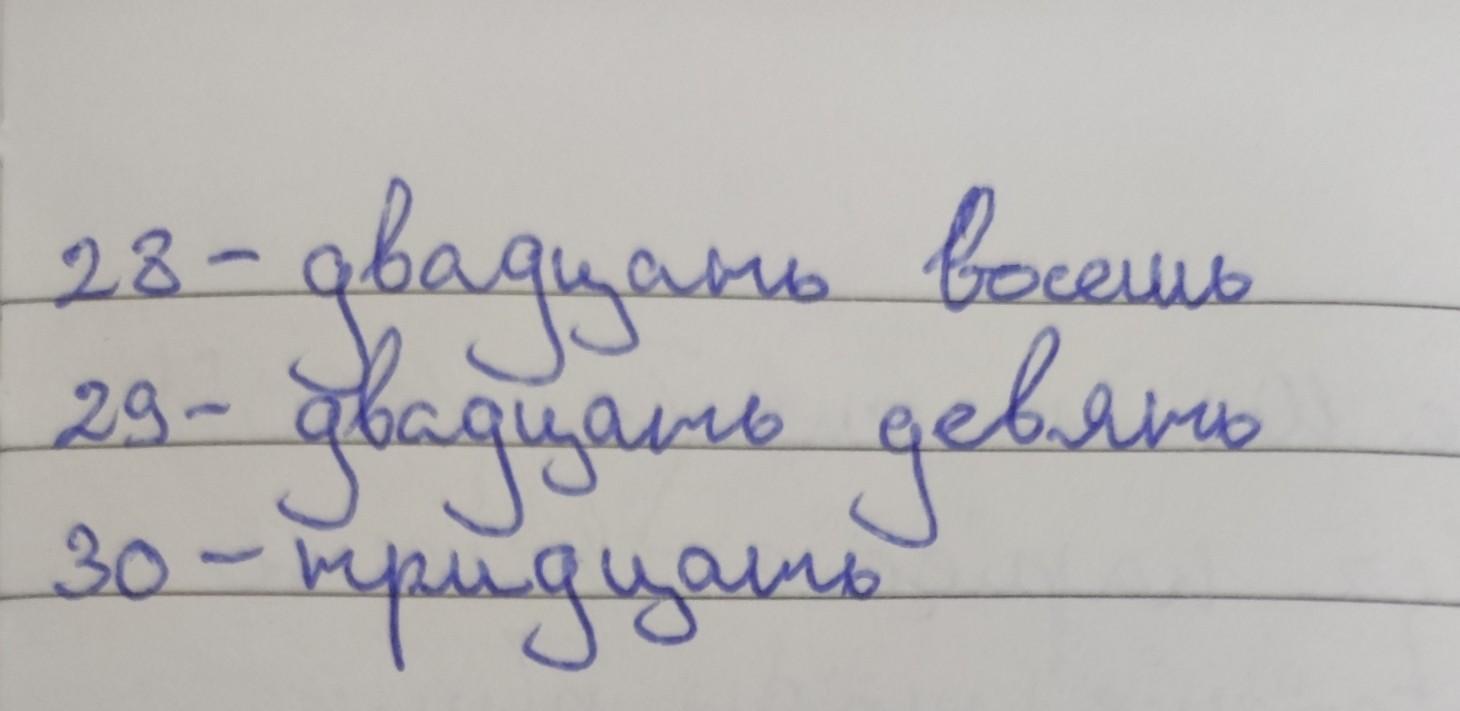 28 - двадцать восемь
29 - двадцать девять
30 - тридцать